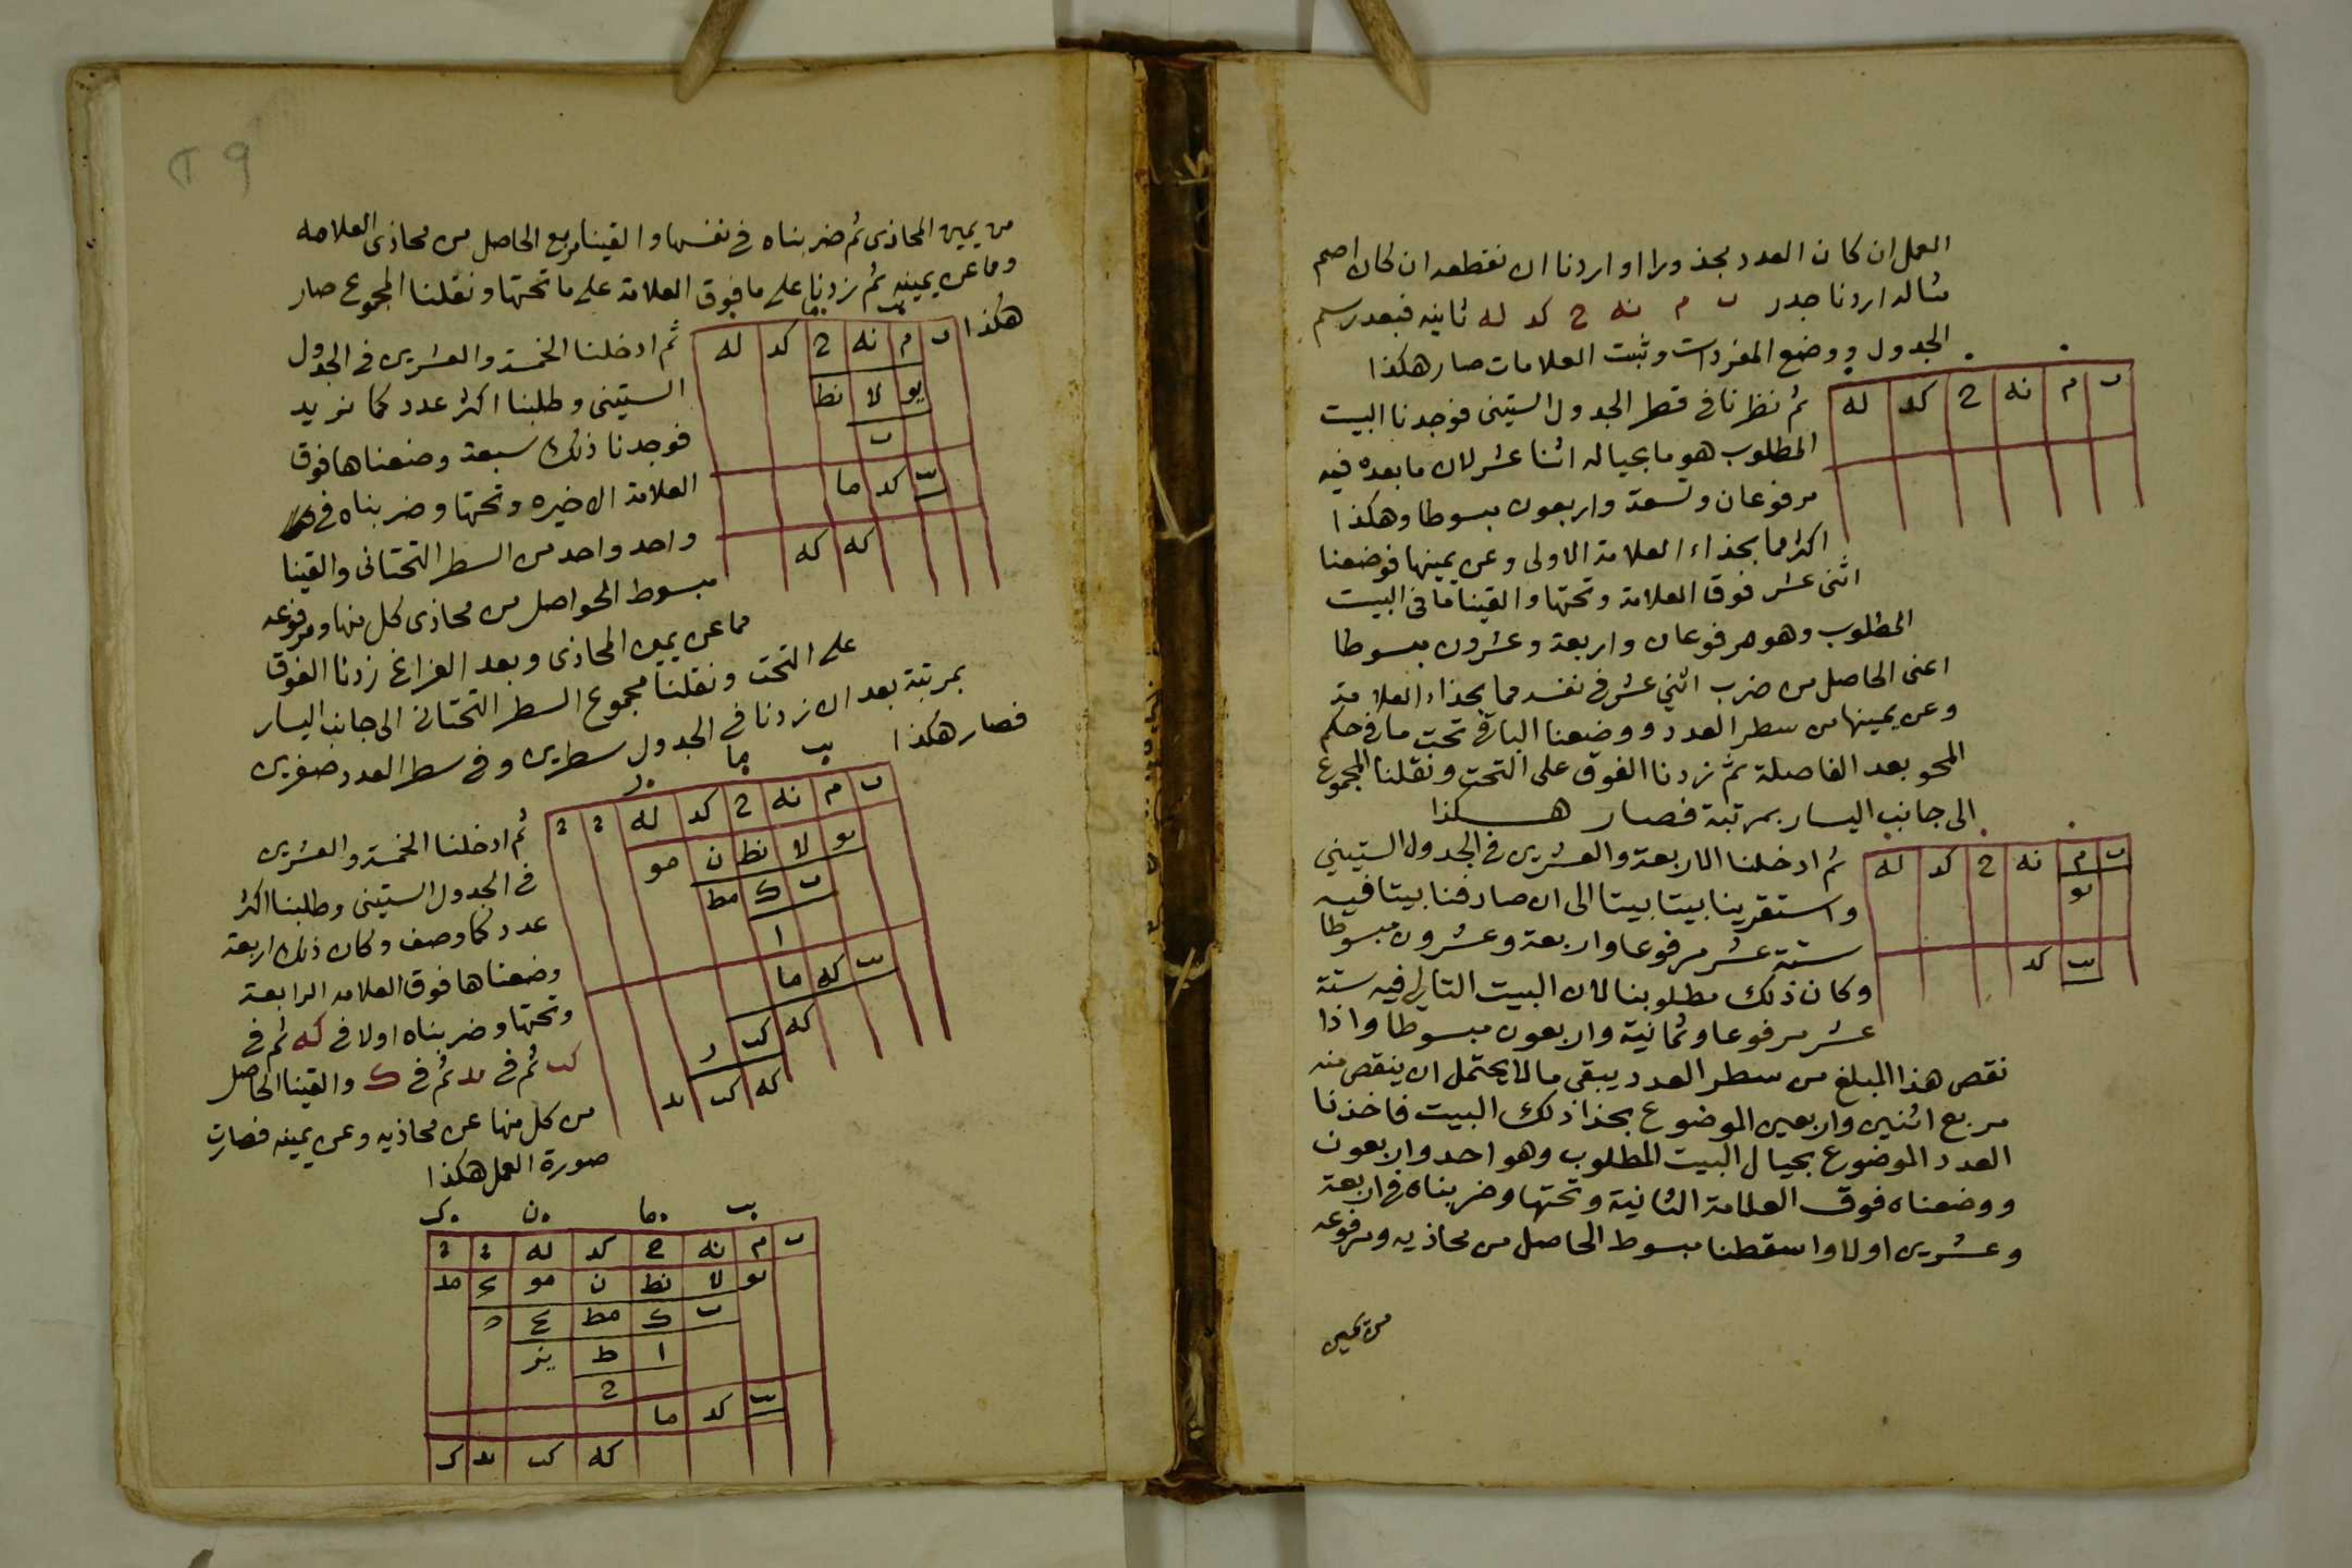 العمل ان كان العدد مجذورا او اردنا ان نقطعه ان كان اصم
مثاله اردنا جذر ب م نه ح كد له ثانيه فبعد رسم
الجدول ووضع المفردات وثبت العلامات صار هكذا
ب م نه ح كد له
ثم نظرنا في قطر الجدول الستيني فوجدنا البيت
المطلوب هو ما بحياله اثنا عشر لان ما بعده فيه
مرفوعان وتسعة واربعون مبسوطا وهكذا
اكثر مما بحذاء العلامة الاولى وعن يمينها فوضعنا
اثنى عشر فوق العلامة وتحتها والقينا ما في البيت
المطلوب وهو مرفوعان واربعة وعشرون مبسوطا
اعنى الحاصل من ضرب اثني عشر في نفسه مما بحذاء العلامة
وعن يمينها من سطر العدد ووضعنا الباقي تحت ما في حكم
المحو بعد الفاصلة ثم زدنا الفوق على التحت ونقلنا المجموع
الى جانب اليسار بمرتبة فصار هكذا
ب م نه ح كد له
يو
يب كد
ثم ادخلنا الاربعة والعشرين في الجدول الستيني
واستقرينا بيتا بيتا الى ان صادفنا بيتا فيه
ستة عشر مرفوعا واربعة وعشرون مبسوطا
وكان ذلك مطلوبنا لان البيت التالي فيه ستة
عشر مرفوعا وثمانية واربعون مبسوطا واذا
نقص هذا المبلغ من سطر العدد يبقى ما لا يحتمل ان ينقص منه
مربع اثنين واربعين الموضوع بحذا ذلك البيت فاخذنا
العدد الموضوع بحيال البيت المطلوب وهو احد واربعون
ووضعناه فوق العلامة الثانية وتحتها وضربناه في اربعة
وعشرين اولا واسقطنا مبسوط الحاصل من محاذيه ومرفوعه
من يمين
٢٩
من يمين المحاذى ثم ضربناه في نفسها والقينا مربع الحاصل من محاذى العلامه
وما عن يمينه ثم زدنا على ما فوق العلامة على ما تحتها ونقلنا المجموع صار
هكذا
يب ما
ب م نه ح كد له
يو لا نط
ب
يب كد ما
كه كه
ثم ادخلنا الخمسة والعشرين في الجدول
الستيني وطلبنا اكثر عدد كما نريد
فوجدنا ذلك سبعة وضعناها فوق
العلامة الاخيره وتحتها وضربناه في
واحد واحد من السطر التحتانى والقينا
مبسوط الحواصل من محاذى كل منها ومرفوعه
مما عن يمين المحاذى وبعد الفراغ زدنا الفوق
على التحت ونقلنا مجموع السطر التحتانى الى جانب اليسار
بمرتبة بعد ان زدنا في الجدول سطرين وفي سطر العدد صفرين
فصار هكذا
يب ما ز
ب م نه ح كد له
يو لا نط ن مو
ب ك مط
ا
يب كه ما
كه كب ز
كه كب يد
ثم ادخلنا الخمسة والعشرين
في الجدول الستيني وطلبنا اكثر
عدد كما وصف وكان ذلك اربعة
وضعناها فوق العلامه الرابعة
وتحتها وضربناه اولا في كه ثم في
كب ثم في يد ثم في ك والقينا الحاصل
من كل منها عن محاذيه وعن يمينه فصارت
صورة العمل هكذا
ب م نه ح كد له
يو لا نط ن مو
ب ك مط
ا ط
ح
يب كد ما
كه كب يد